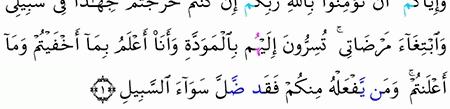 وَإِيَّاكُمْ أَن تُؤْمِنُوا۟ بِٱللَّهِ رَبِّكُمْ إِن كُنتُمْ خَرَجْتُمْ جِهَٰدًا فِى سَبِيلِى
وَٱبْتِغَآءَ مَرْضَاتِى ۚ تُسِرُّونَ إِلَيْهِم بِٱلْمَوَدَّةِ وَأَنَا۠ أَعْلَمُ بِمَآ أَخْفَيْتُمْ وَمَآ
أَعْلَنتُمْ ۚ وَمَن يَفْعَلْهُ مِنكُمْ فَقَد ضَّلَّ سَوَآءَ ٱلسَّبِيلِ ﴿١﴾